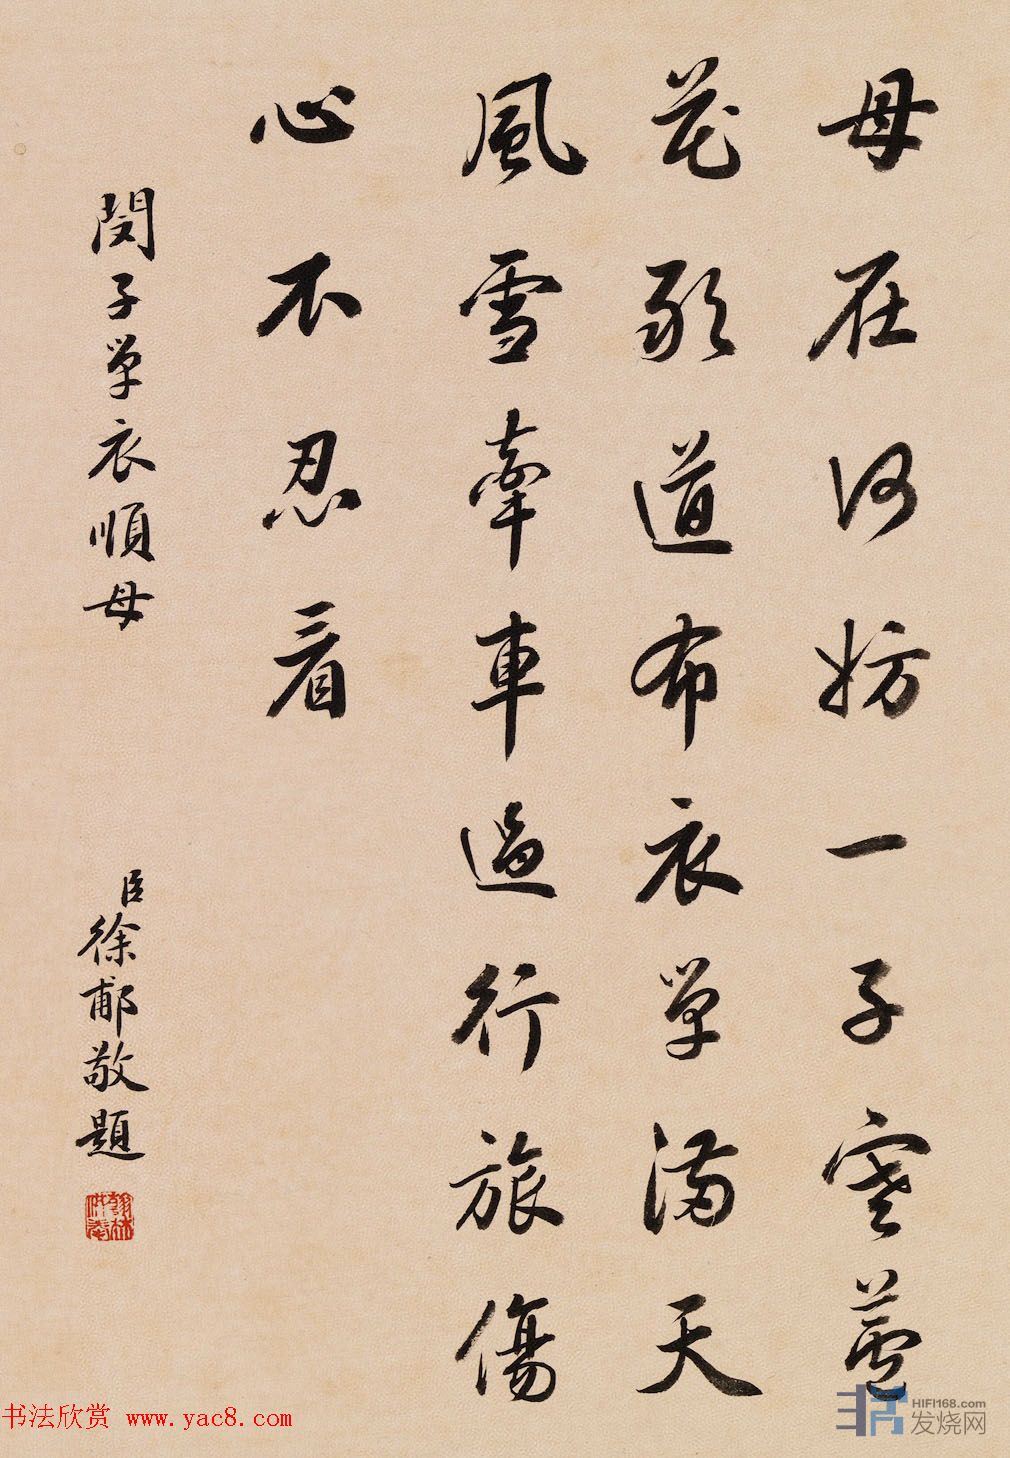 母在何妨一子寒蘆
花敢道布衣單滿天
風雪牽車過行旅傷
心不忍看
閔子單衣順母
臣徐郙敬題
书法欣赏 www.yac8.com
HIFI168.com
发烧网